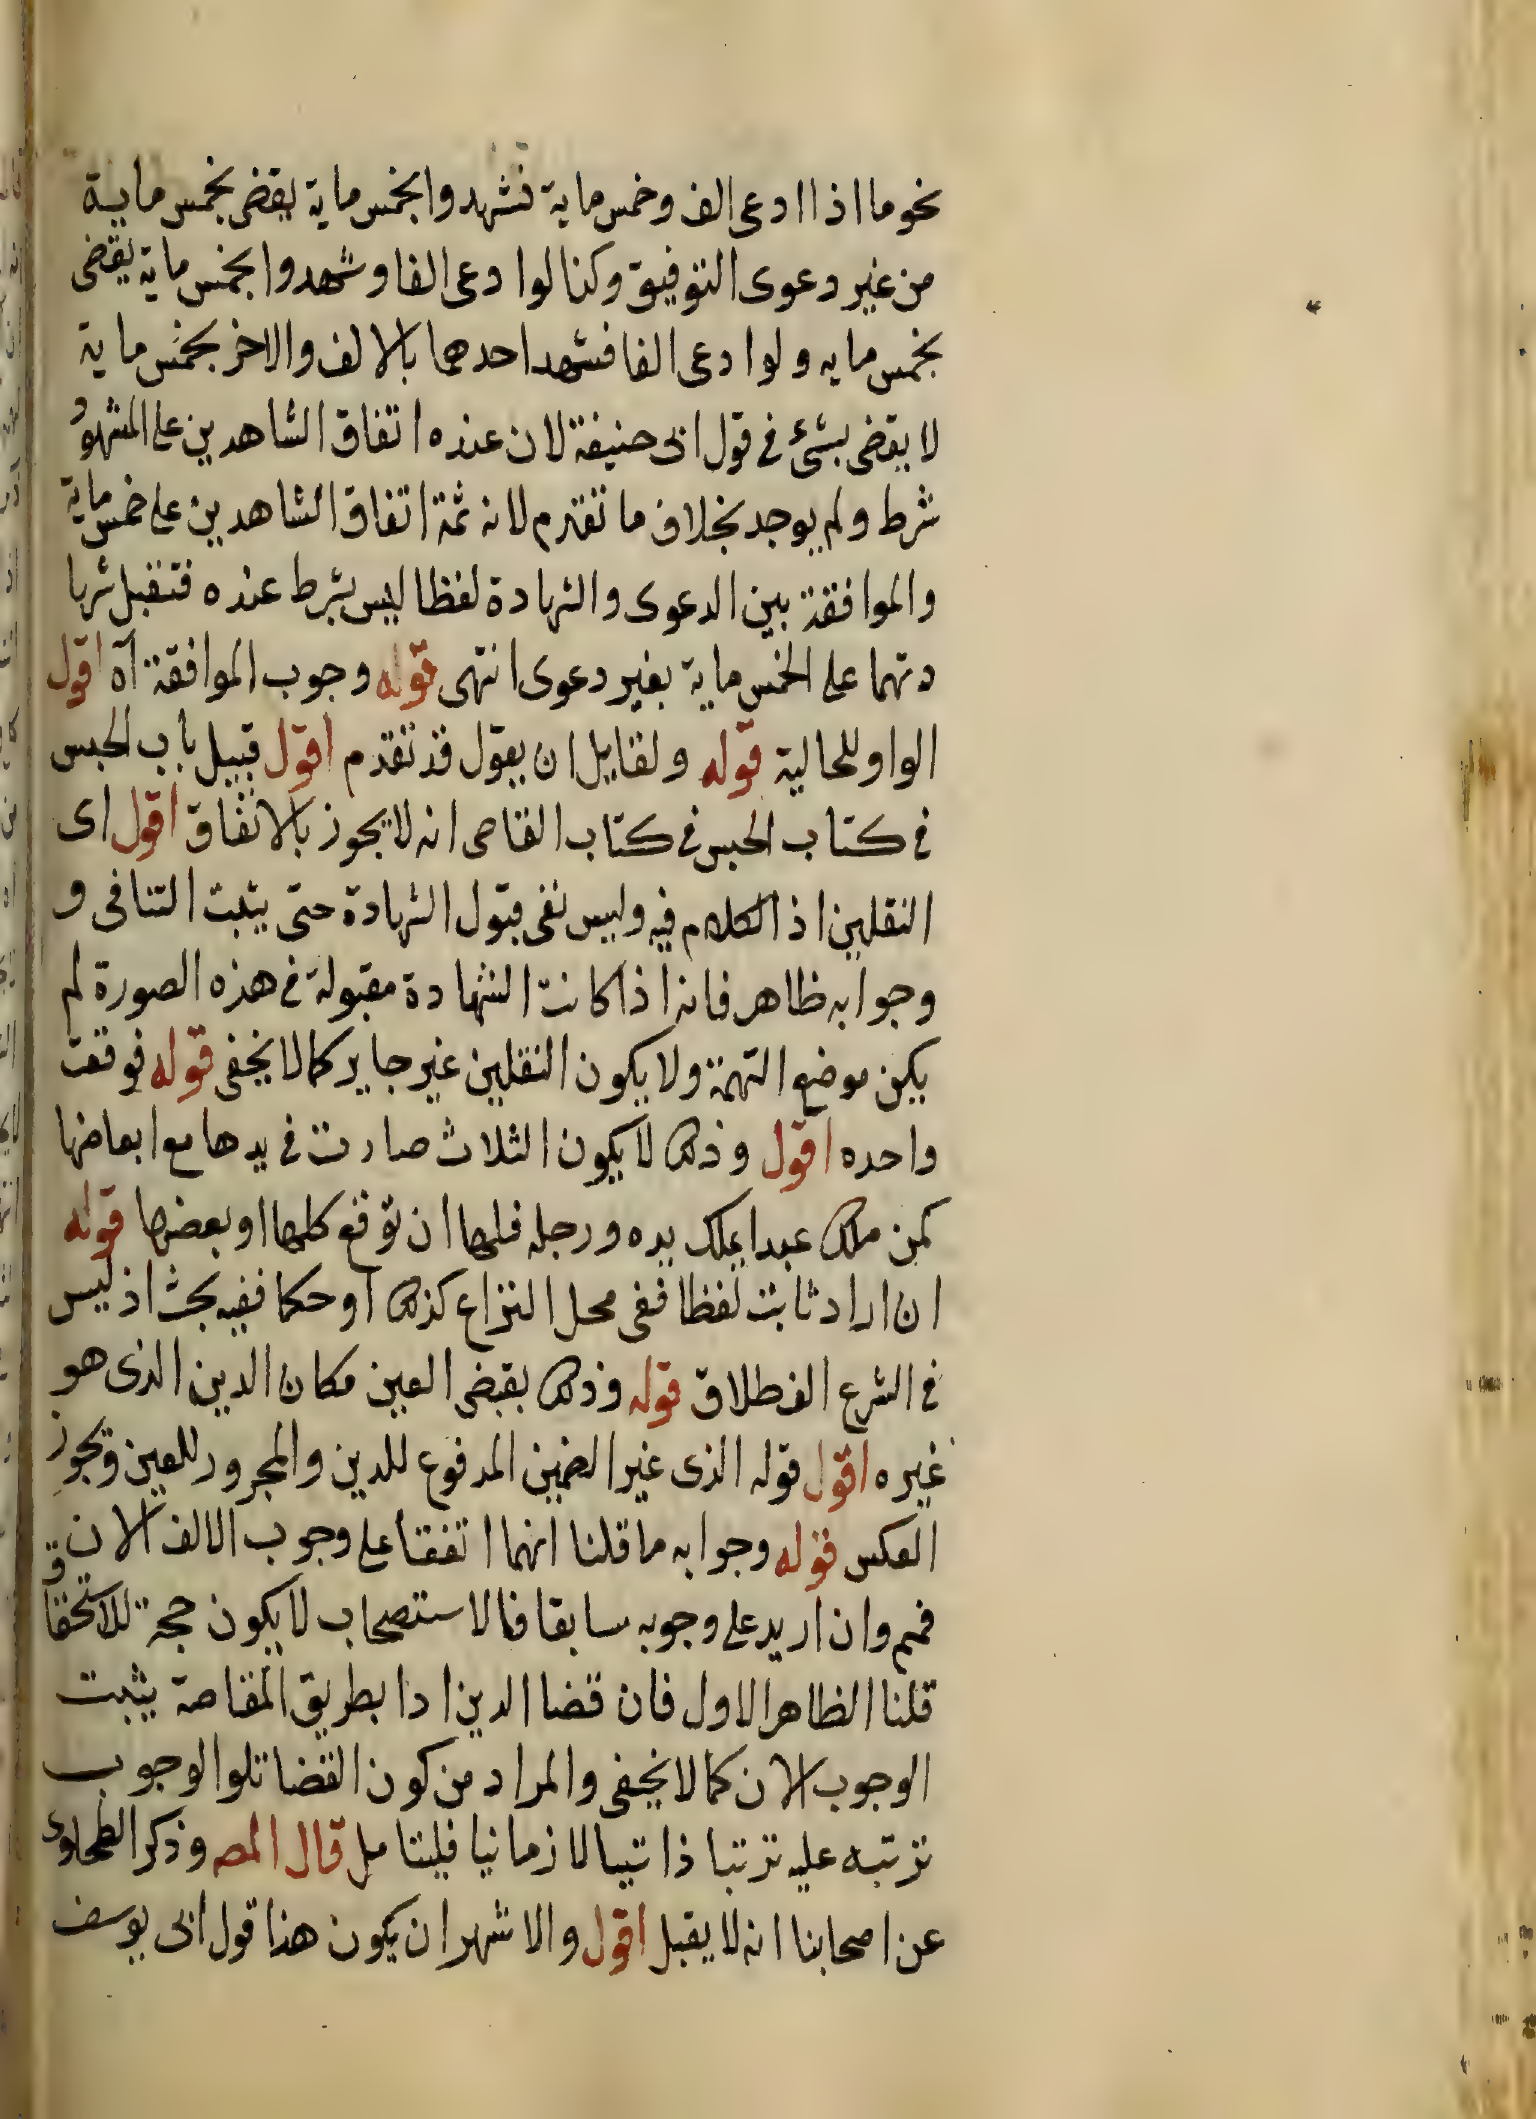 نحو ما اذا ادعى الف وخمس ماية فشهدوا بخمس ماية يقضى بخمس ماية
من غير دعوى التوفيق وكذا لو ادعى الفا وشهدوا بخمس ماية يقضى
بخمس مايه ولو ادعى الفا فشهد احدهما بالالف والاخر بخمس ماية
لا يقضى بشئ فى قول ابى حنيفة لان عنده اتفاق الشاهدين على المشهود
شرط ولم يوجد بخلاف ما تقدم لانه ثمة اتفاق الشاهدين على خمس ماية
والموافقة بين الدعوى والشهادة لفظا ليس بشرط عنده فتقبل شها
دتهما على الخمس ماية بغير دعوى انتهى قوله وجوب الموافقة آه اقول
الواو للحالية قوله ولقايل ان يقول قد تقدم اقول قبيل باب الحبس
فى كتاب الحبس فى كتاب القاضى انه لا يجوز بالاتفاق اقول اى
النقلين اذ الكلام فيه وليس نفى قبول الشهادة حتى يثبت التنافى و
وجوابه ظاهر فانه اذا كانت الشهادة مقبولة فى هذه الصورة لم
يكن موضع التهمة ولا يكون النقلين غير جايز كما لا يخفى قوله فوقعت
واحده اقول وذلك لا يكون الثلاث صارت فى يدها مع ابعاضها
كمن ملك عبدا يملك يده ورجله فلها ان توقع كلها او بعضها قوله
ان اراد ثابت لفظا ففى محل النزاع كذلك او حكما ففيه بحث اذ ليس
فى الشرع الف طلاق قوله وذلك بقبض العين مكان الدين الذى هو
غيره اقول قوله الذى غير الضمين المرفوع للدين والمجرور للعين ويجوز
العكس قوله وجوابه ما قلنا انهما اتفقا على وجوب الالف الان
فمم وان اريد على وجوبه سابقا فالاستصحاب لا يكون حجة للاستحقاق
قلنا الظاهر الاول فان قضا الدين اذا بطريق المقاصة يثبت
الوجوب الان كما لا يخفى والمراد من كون القضا تلو الوجوب
ترتبه عليه ترتبا ذاتيا لا زمانيا فليتامل قال المصه وذكر الطحاوى
عن اصحابنا انه لا يقبل اقول والاشهر ان يكون هذا قول ابى يوسف